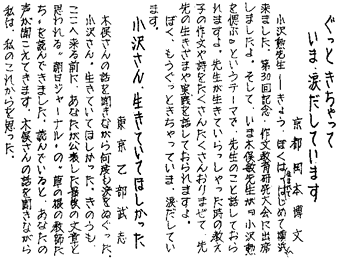 ぐっときちゃって
いま、涙だしています
京都 岡本博文
小沢勲先生―きょう、ぼくは、はじめて
来ました。第30回記念・作文教育研究大会に出席
しましたよ。そして、いま木俣敏先生が『小沢勲
を偲ぶ』というテーマで、先生のこと話しておら
れますよ。先生が生きていらっしゃった時の教え
子の作文や詩をたくさんたくさんおりまぜて、先
生の生きざまや実践を話しておられますよ。
ぼく、もうぐっときちゃっていま、涙だしてい
ます。
小沢さん、生きていてほしかった
東京 乙部武志
木俣さんの話を聞きながら何度も涙をぬぐった。
小沢さん、生きていてほしかった。きのうも、
ここへ来る前に、あなたが公表した最後の文章と
思われる"朝日ジャーナル"の"草の根の教師た
ち"を読んできました。読んでいると、あなたの
声が聞こえてきます。木俣さんの話を聞きながら
私は、私のこれからを思った。